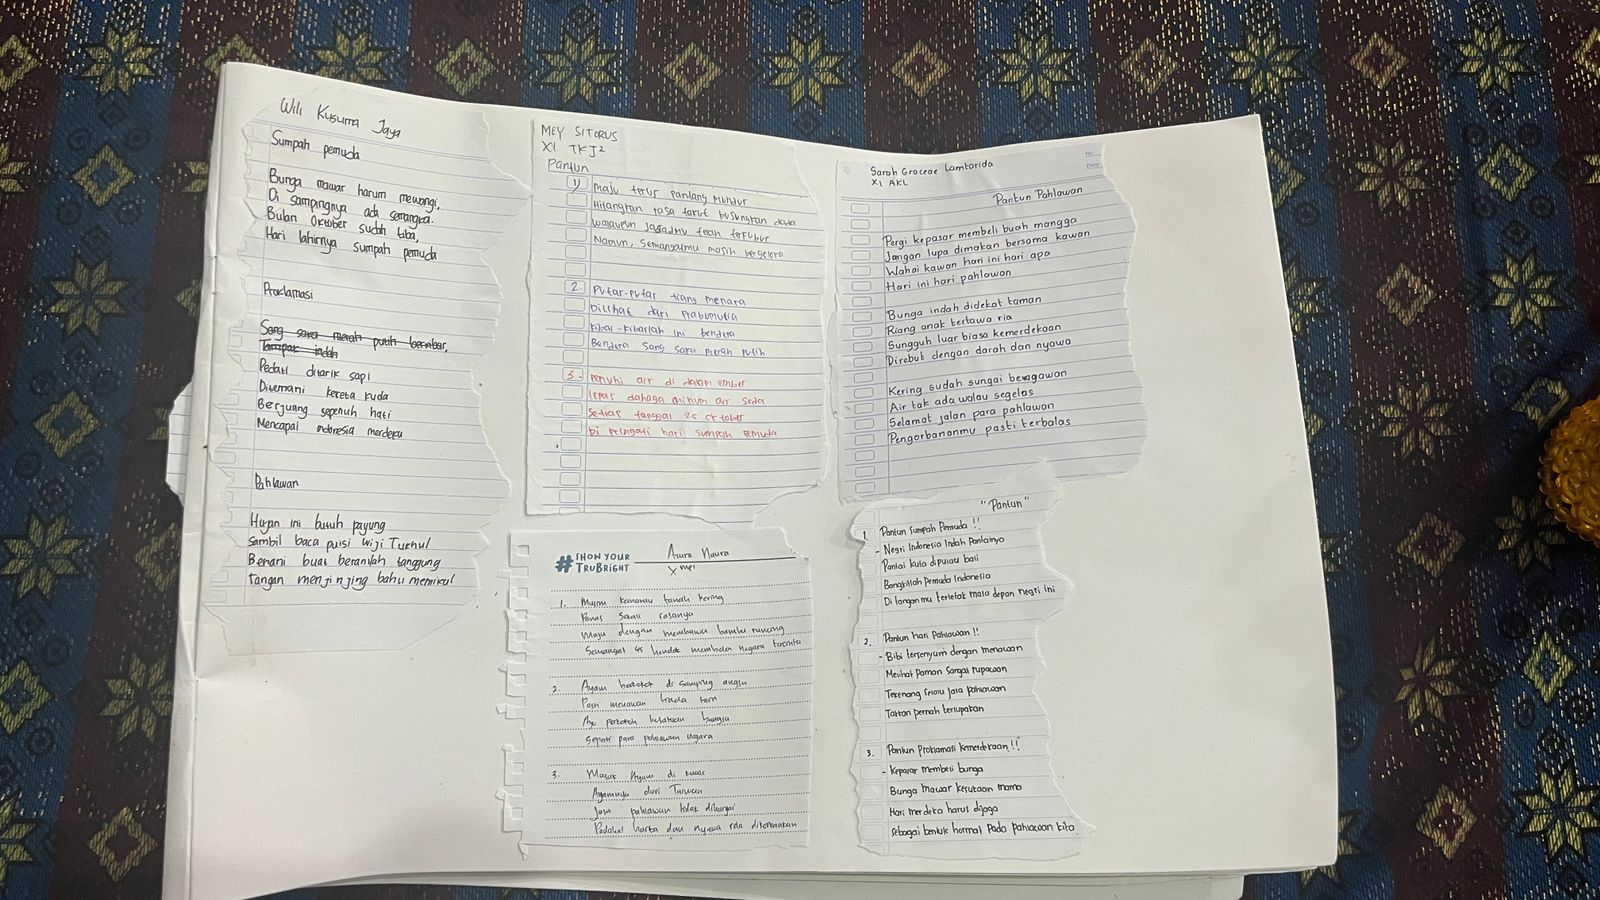 Wili Kusuma Jaya
Sumpah pemuda
Bunga mawar harum mewangi,
Di sampingnya ada semangka.
Bulan Oktober sudah tiba,
Hari lahirnya sumpah pemuda
Proklamasi
Sang sara merah putih berkibar,
Tampak indah
Pedati ditarik sapi
Ditemani kereta kuda
Berjuang sepenuh hati
Mencapai indonesia merdeka
Pahlawan
Hujan ini butuh payung
Sambil baca puisi wiji Tukhul
Berani buat beranilah tanggung
Tangan menjinjing bahu memikul
MEY SITORUS
XI TKJ2
Pantun
1) maju terus pantang mundur
Hilangkan rasa takut busungkan dada
Walaupun jasadmu telah terkubur
Namun, semangatmu masih bergelora
2. Putar-putar tiang menara
Dilihat dari Prabumulia
Kibar-kibarlah ini bendera
Bendera sang sara merah putih
3. Penuhi air di dalam ember
lepas dahaga minum air soda
Setiap tanggal 28 oktober
Di peringati hari sumpah pemuda
Sarah Graceae Lamtarida
XI AKL
No
Date
Pantun Pahlawan
Pergi kepasar membeli buah mangga
Jangan lupa dimakan bersama kawan
Wahai kawan hari ini hari apa
Hari ini hari pahlawan
Bunga indah didekat taman
Riang anak tertawa ria
Sungguh luar biasa kemerdekaan
Direbut dengan darah dan nyawa
Kering sudah sungai bengawan
Air tak ada walau segelas
Selamat jalan para pahlawan
Pengorbananmu pasti terbalas
#SHOW YOUR
TRUBRIGHT
Azura Naura
X
1. Musim kemarau tanah kering
Panas sekali rasanya
Maju dengan membawa bambu runcing
Semangat 45 hendak membela negara tercinta
2. Ayam berkokok di samping angsa
Pasti menawan tiada tara
Ayo perkokoh kesatuan bangsa
Seperti para pahlawan negara
3. Masak Ayam di kuali
Ayamnya dari Taiwan
Jasa pahlawan tidak dihargai
Padahal harta dan nyawa rela dikorbankan
"Pantun"
1. Pantun Sumpah Pemuda !!
- Negri Indonesia Indah Pantainya
Pantai kuta dipulau bali
Bangkitlah Pemuda Indonesia
Di tanganmu terletak masa depan negri ini
2. Pantun hari Pahlawan !!
- Bibi tersenyum dengan menawan
Melihat Paman Sangat rupawan
Terkenang selalu jasa pahlawan
Takkan pernah terlupakan
3. Pantun Proklamasi kemerdekaan !!
- Kepasar membeli bunga
Bunga mawar kesukaan mama
Hari merdeka harus dijaga
Sebagai bentuk hormat Pada Pahlawan kita.